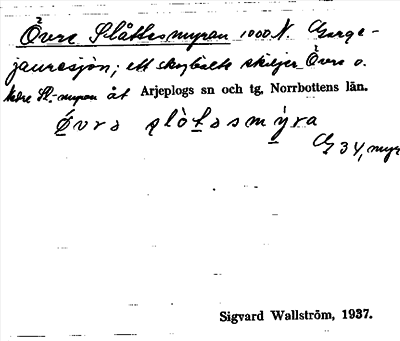 Övre Slåttesmyran 1000 N. Garge-
jauresjön; ett skogbälte skiljer Övre o.
Nedre Sl.-myran åt Arjeplogs sn och tg, Norrbottens län.
Övrə slòtəsmỳra
G 34, myr
Sigvard Wallström, 1937.